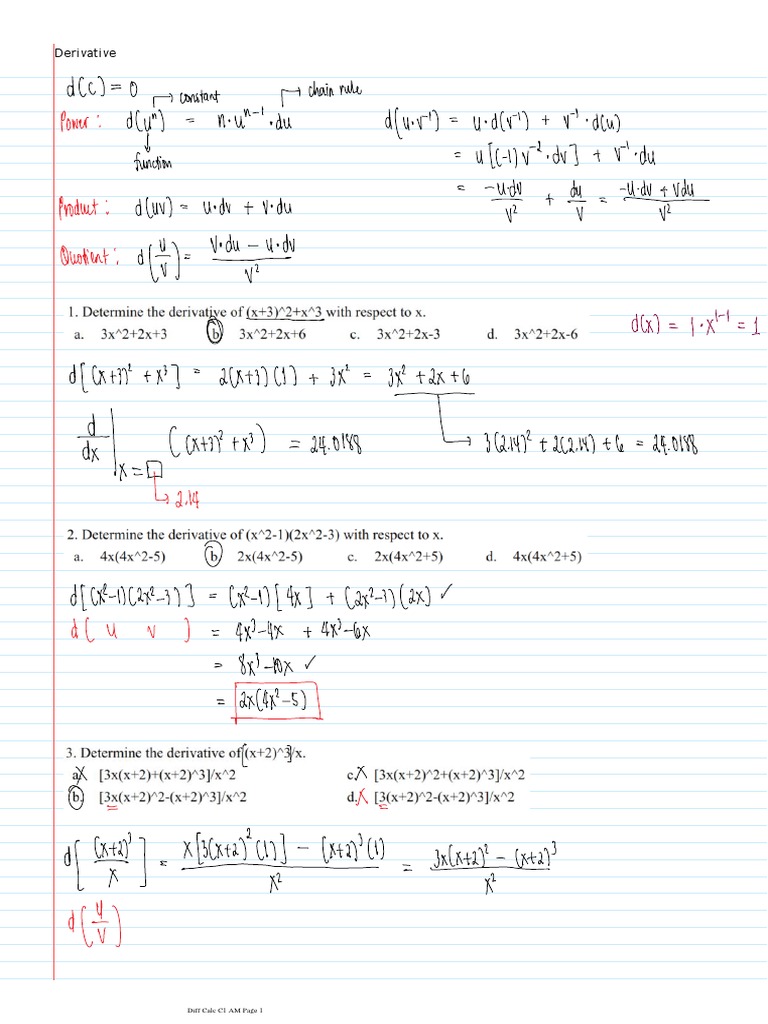 Derivative
d(c) = 0
constant
chain rule
Power: d(uⁿ) = n·uⁿ⁻¹·du
function
d(u·v⁻¹) = u·d(v⁻¹) + v⁻¹·d(u)
= u[(-1)v⁻²·dv] + v⁻¹·du
= -u·dv/v² + du/v = (-u·dv + vdu)/v²
Product: d(uv) = u·dv + v·du
Quotient: d(u/v) = (v·du - u·dv)/v²
1. Determine the derivative of (x+3)^2+x^3 with respect to x.
a. 3x^2+2x+3 b. 3x^2+2x+6 c. 3x^2+2x-3 d. 3x^2+2x-6
d(x) = 1·x¹⁻¹ = 1
d[(x+3)² + x³] = 2(x+3)(1) + 3x² = 3x² + 2x + 6
d/dx | x = □ ((x+3)² + x³) = 24.0188
3(2.14)² + 2(2.14) + 6 = 24.0188
2.14
2. Determine the derivative of (x^2-1)(2x^2-3) with respect to x.
a. 4x(4x^2-5) b. 2x(4x^2-5) c. 2x(4x^2+5) d. 4x(4x^2+5)
d[(x²-1)(2x²-3)] = (x²-1)[4x] + (2x²-3)(2x) ✓
d( u v ) = 4x³-4x + 4x³-6x
= 8x³-10x ✓
= 2x(4x²-5)
3. Determine the derivative of [(x+2)^3]/x.
a. [3x(x+2)+(x+2)^3]/x^2 c. [3x(x+2)^2+(x+2)^3]/x^2
b. [3x(x+2)^2-(x+2)^3]/x^2 d. [3(x+2)^2-(x+2)^3]/x^2
d[(x+2)³/x] = (x[3(x+2)²(1)] - (x+2)³(1))/x² = (3x(x+2)² - (x+2)³)/x²
d(u/v)
Diff Calc C1 AM Page 1